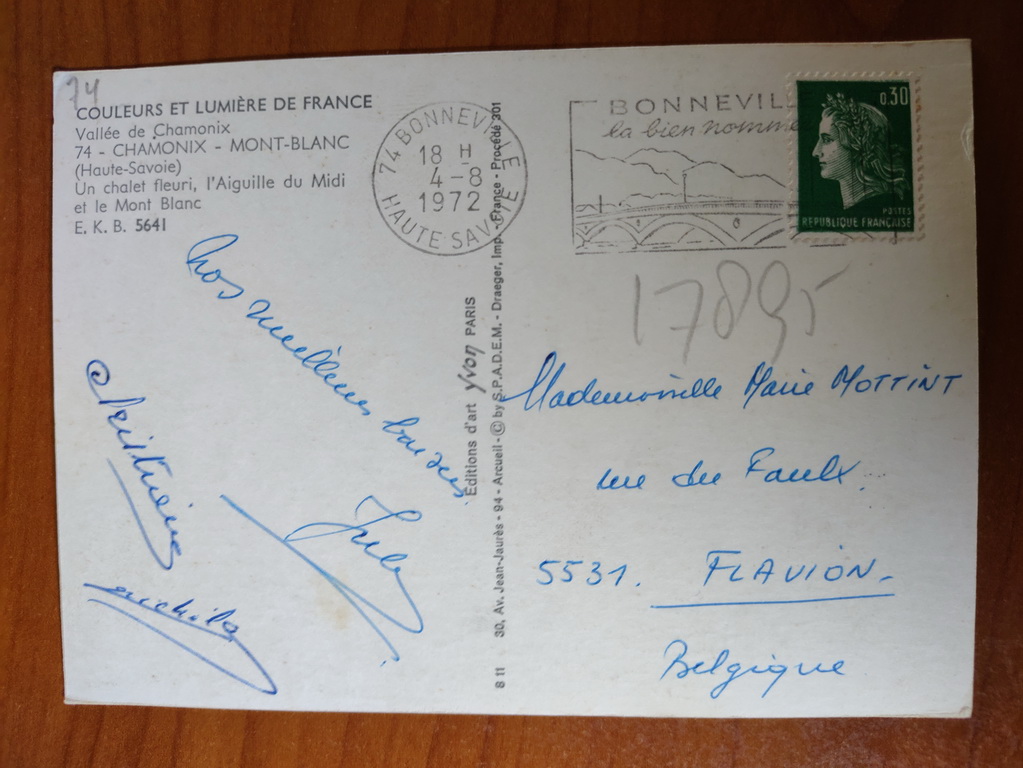 74
COULEURS ET LUMIÈRE DE FRANCE
Vallée de Chamonix
74 - CHAMONIX - MONT-BLANC
(Haute-Savoie)
Un chalet fleuri, l'Aiguille du Midi
et le Mont Blanc
E. K. B. 5641
74 BONNEVILLE
18 H
4-8
1972
HAUTE-SAVOIE
BONNEVIL
la bien nommée
0.30
POSTES
REPUBLIQUE FRANÇAISE
17895
Nos meilleurs baisers
Christiane
Editions d'art yvon PARIS
30, Av. Jean-Jaurès - 94 - Arcueil - © by S.P.A.D.E.M. - Draeger, Imp. - France - Procédé 301
8 11
Mademoiselle Marie MOTTINT
rue du Faulx.
5531. FLAVION.
Belgique